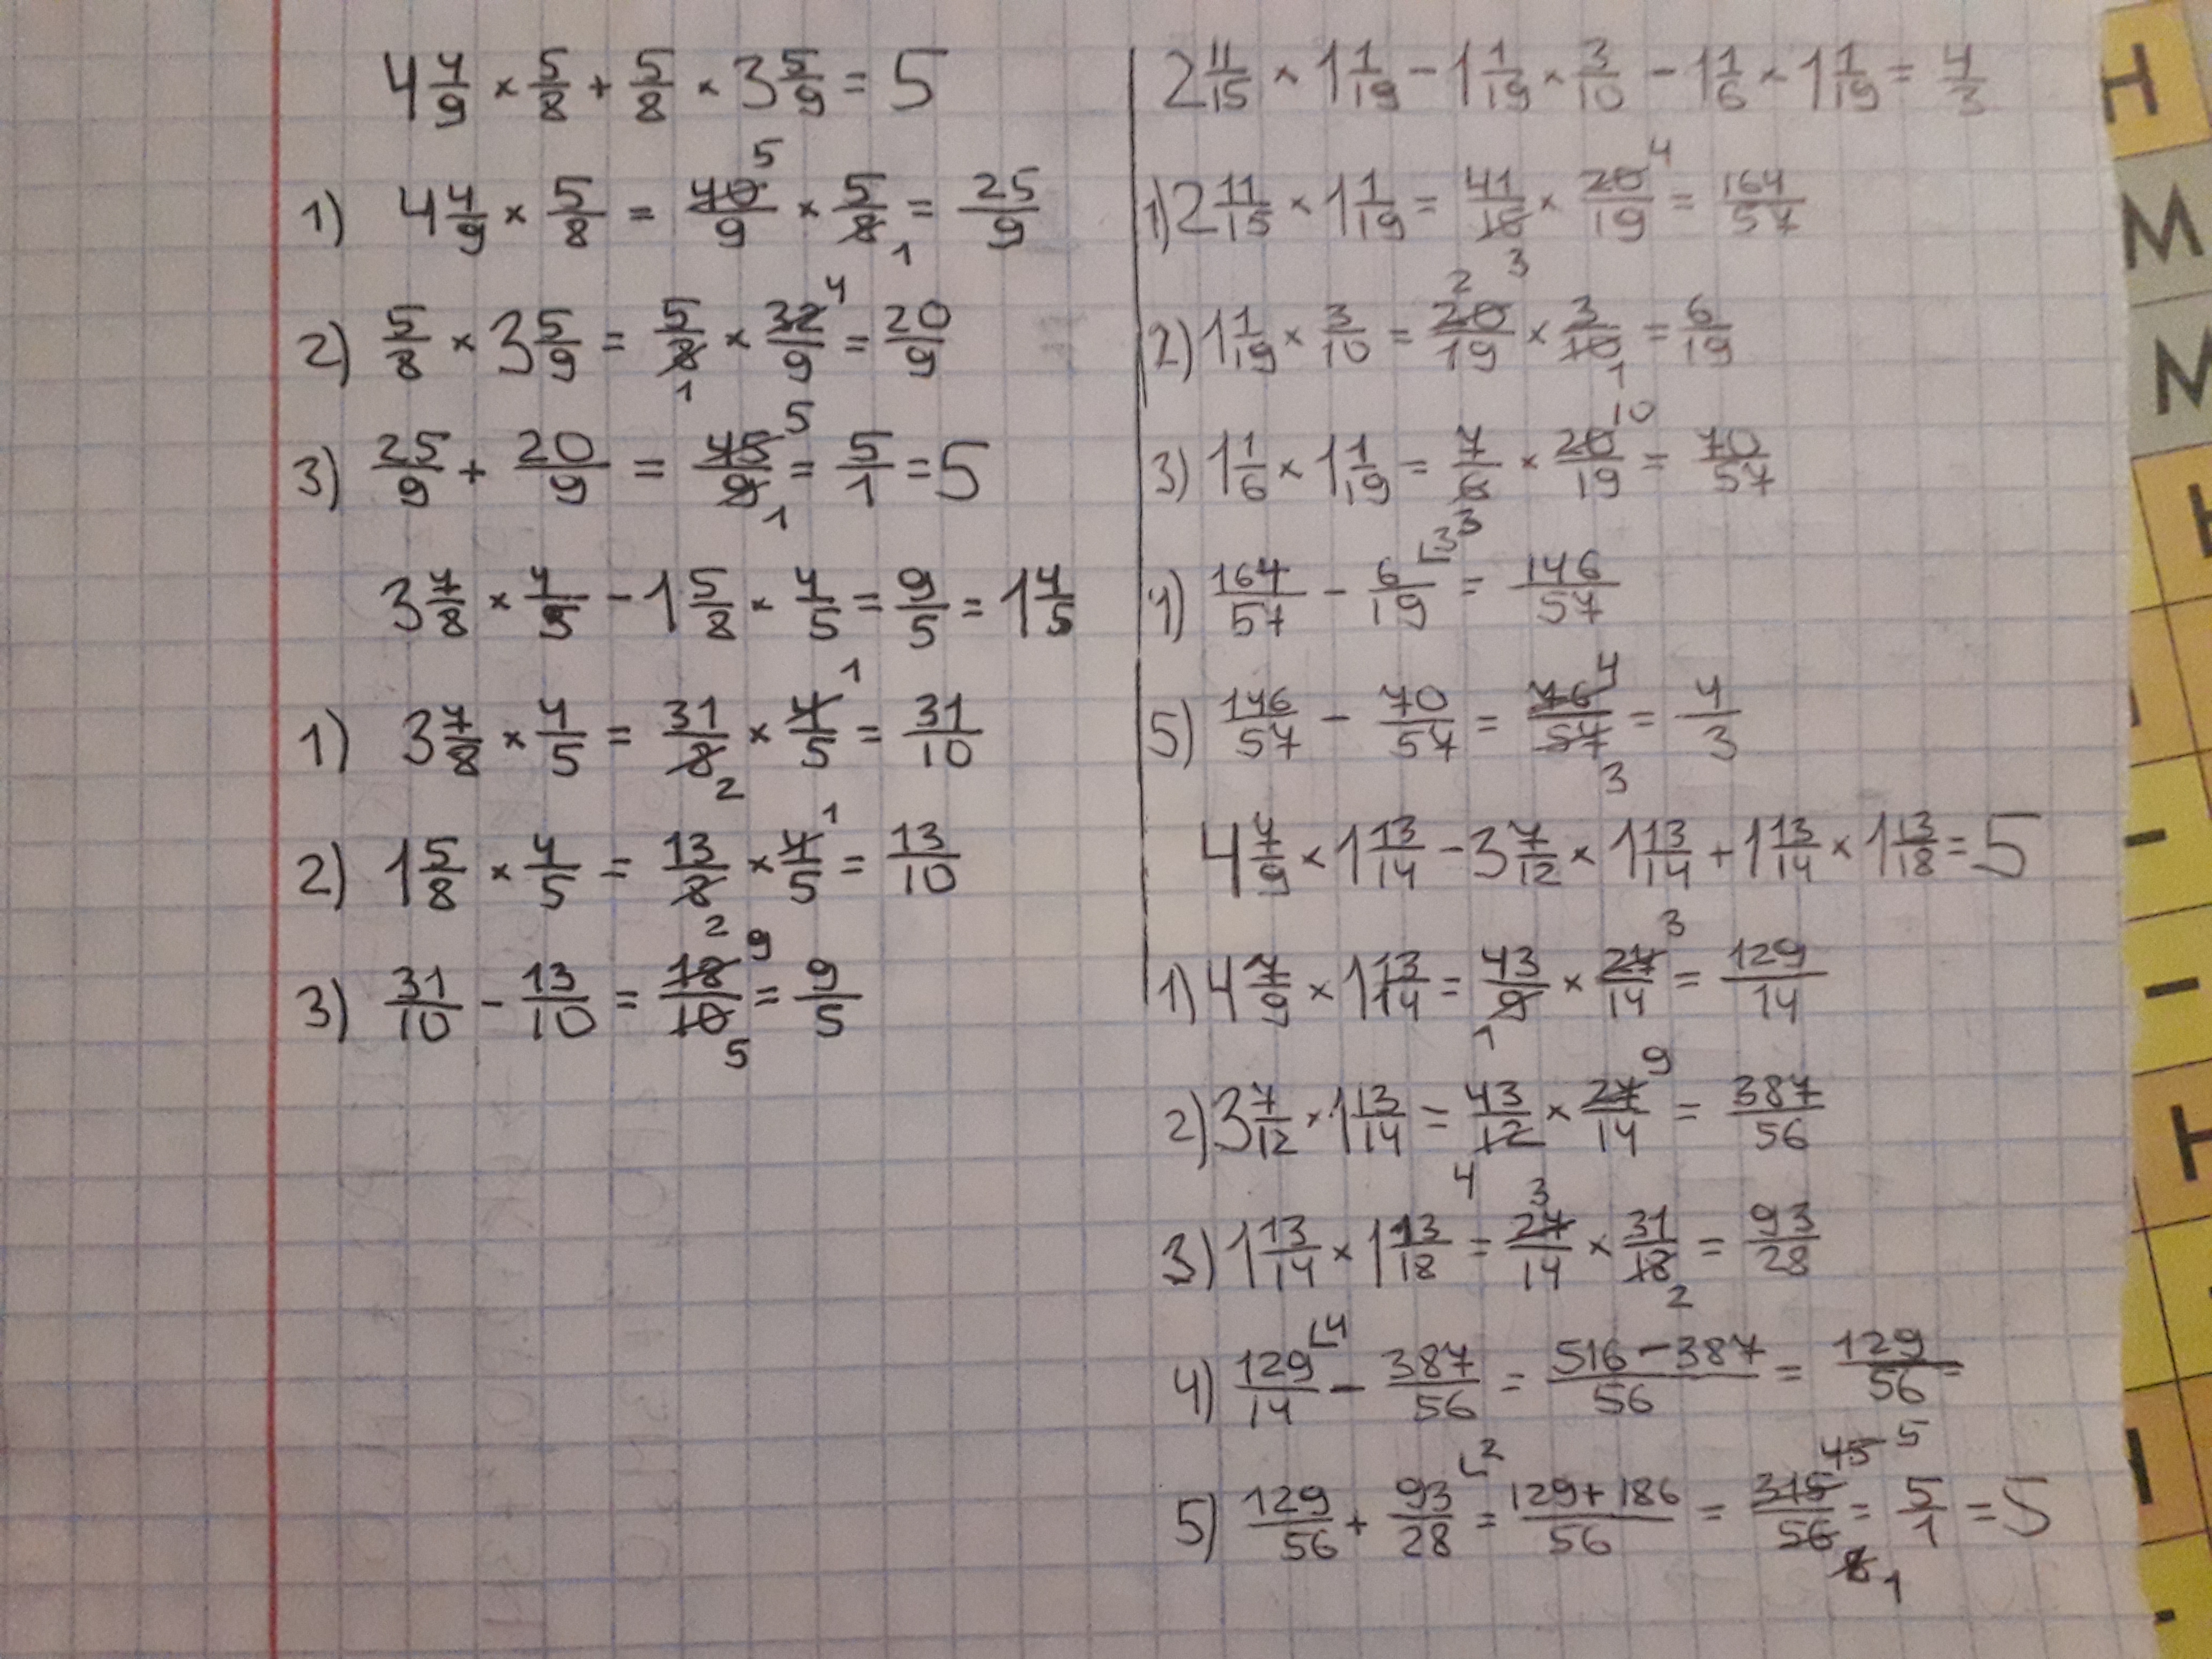 4 4/9 × 5/8 + 5/8 × 3 5/9 = 5
1) 4 4/9 × 5/8 = 40/9 5 × 5/8 1 = 25/9
2) 5/8 × 3 5/9 = 5/8 1 × 32/9 4 = 20/9
3) 25/9 + 20/9 = 45/9 5 1 = 5/1 = 5
3 7/8 × 4/5 - 1 5/8 × 4/5 = 9/5 = 1 4/5
1) 3 7/8 × 4/5 = 31/8 2 × 4/5 1 = 31/10
2) 1 5/8 × 4/5 = 13/8 2 × 4/5 1 = 13/10
3) 31/10 - 13/10 = 18/10 9 5 = 9/5
2 11/15 × 1 1/19 - 1 1/19 × 3/10 - 1 1/6 × 1 1/19 = 4/3
1) 2 11/15 × 1 1/19 = 41/15 3 × 20/19 4 = 164/57
2) 1 1/19 × 3/10 = 20/19 2 × 3/10 1 = 6/19
3) 1 1/6 × 1 1/19 = 7/6 3 × 20/19 10 = 70/57
4) 164/57 - 6/19 3 = 146/57
5) 146/57 - 70/57 = 76/57 4 3 = 4/3
4 7/9 × 1 13/14 - 3 7/12 × 1 13/14 + 1 13/14 × 1 13/18 = 5
1) 4 7/9 × 1 13/14 = 43/9 1 × 27/14 3 = 129/14
2) 3 7/12 × 1 13/14 = 43/12 4 × 27/14 9 = 387/56
3) 1 13/14 × 1 13/18 = 27/14 3 × 31/18 2 = 93/28
4) 129/14 4 - 387/56 = 516-387/56 = 129/56 =
5) 129/56 + 93/28 2 = 129+186/56 = 315/56 45 5 8 1 = 5/1 = 5
Н
М
М